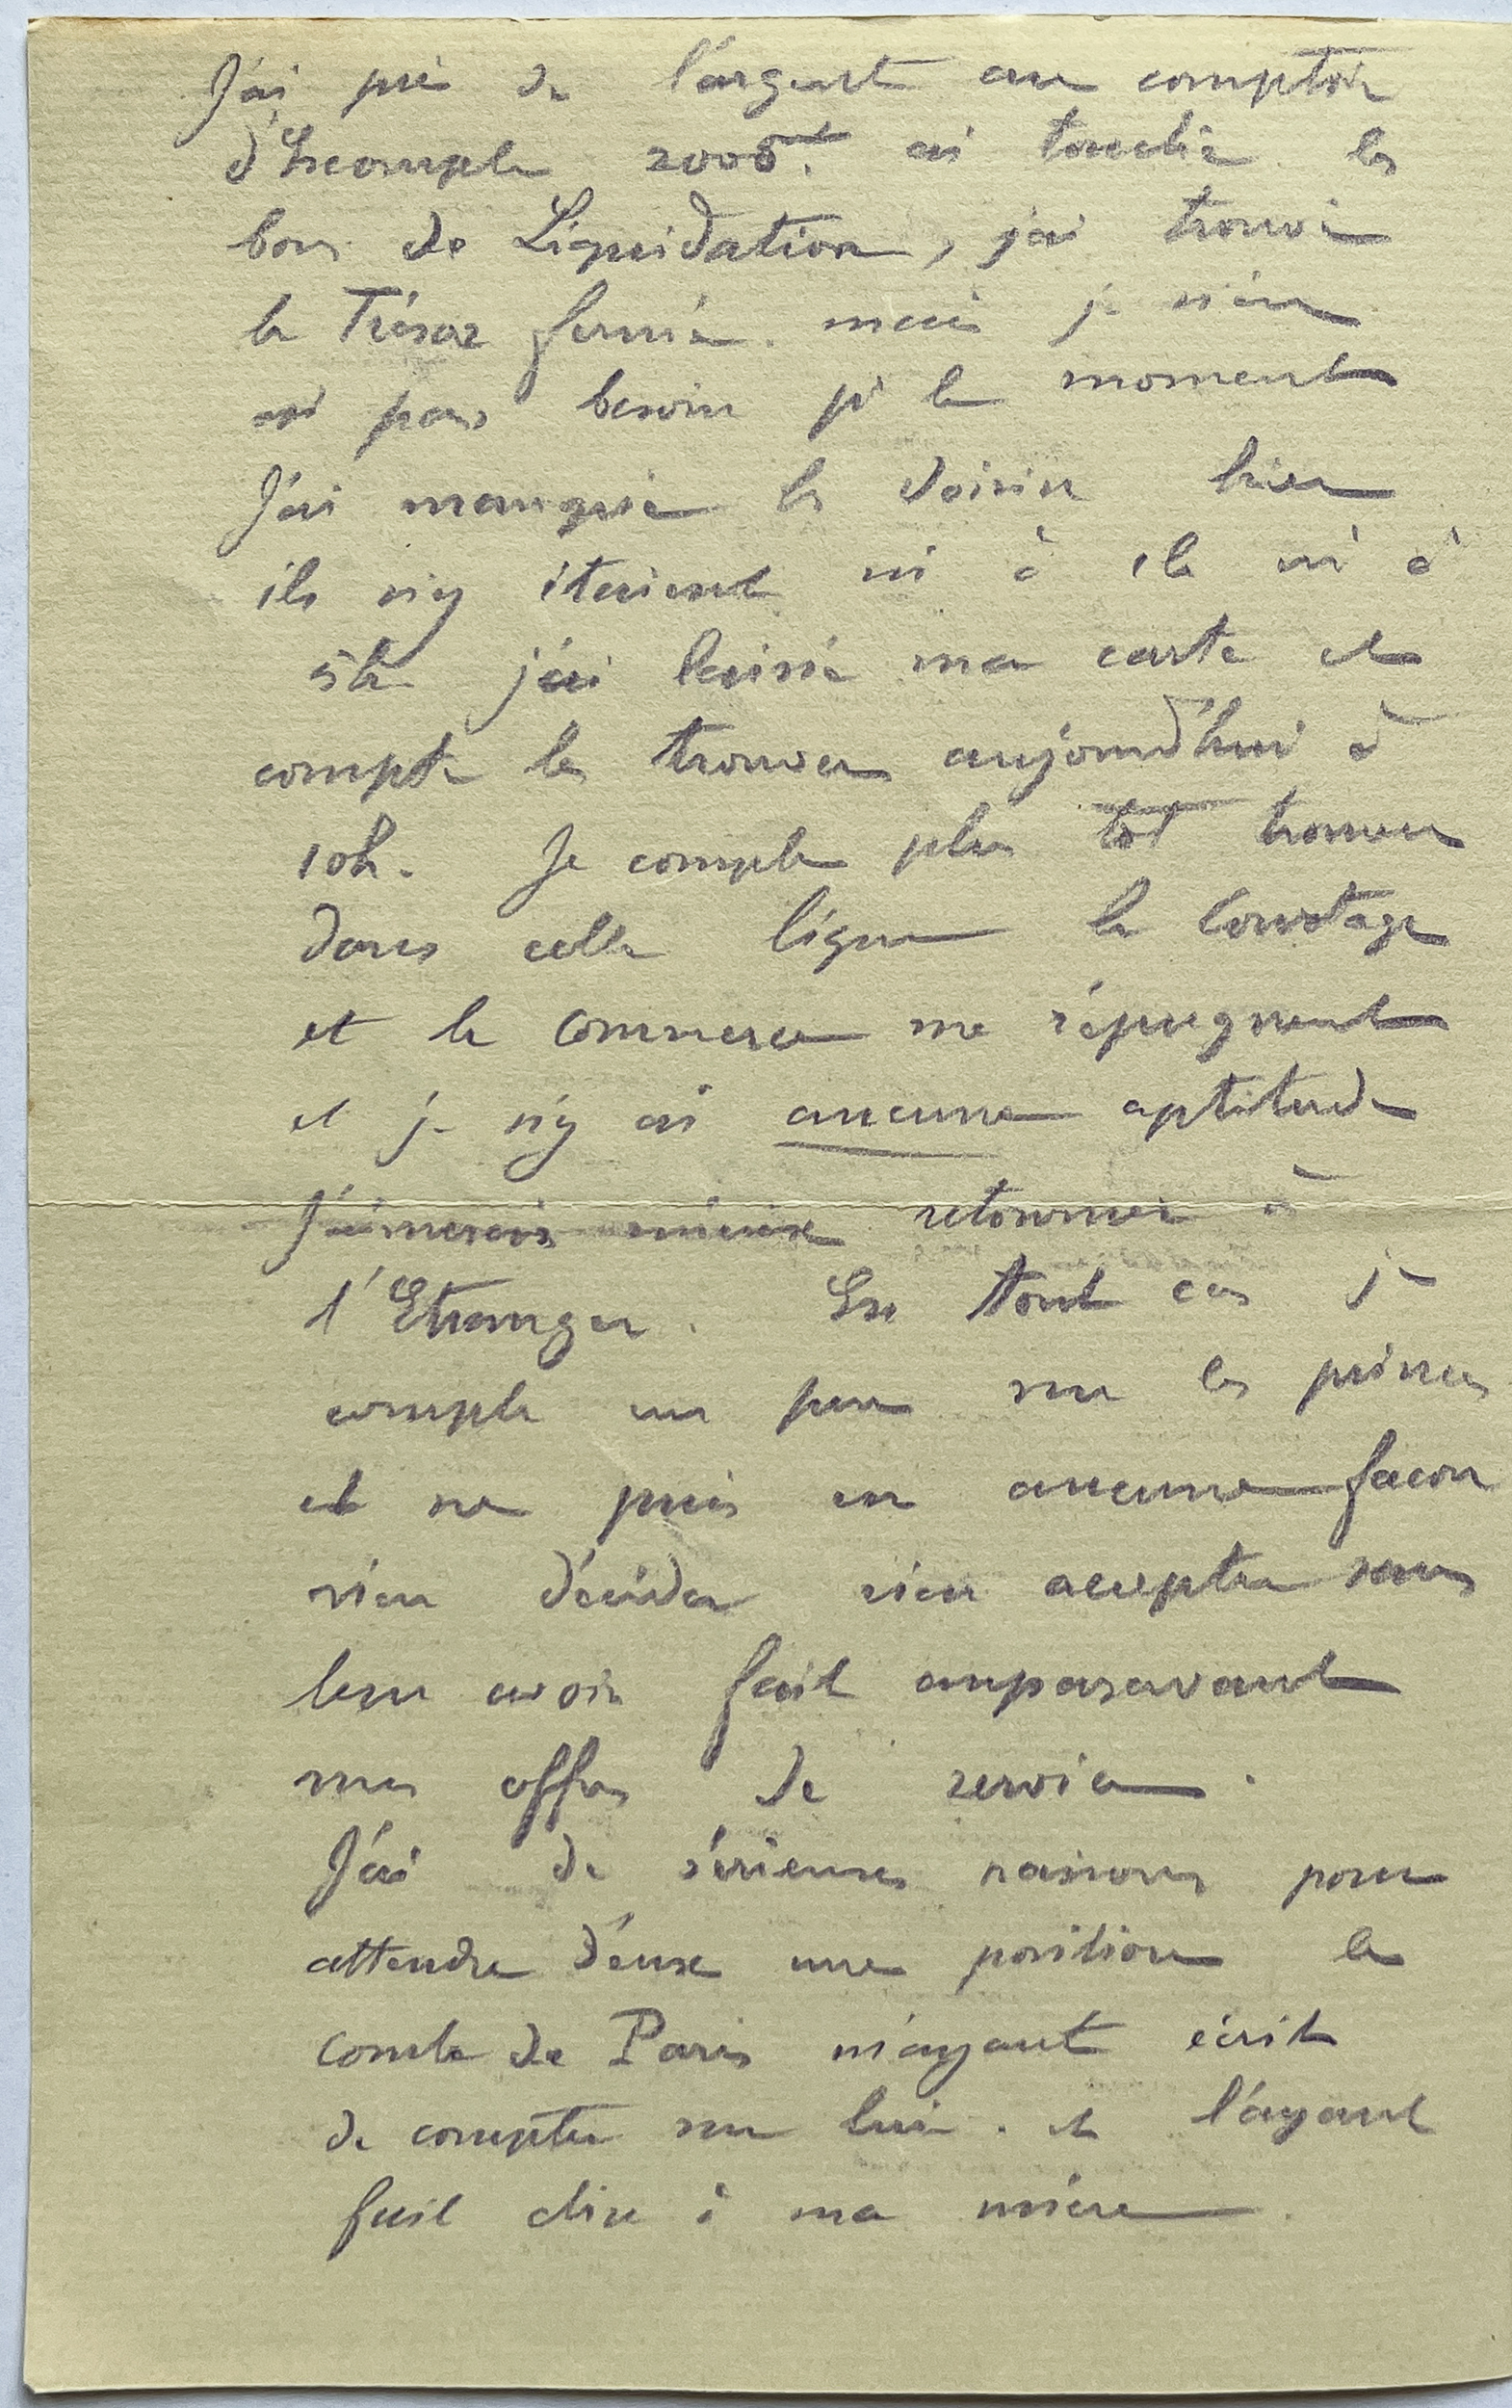 J'ai pris de l'argent au comptoir
d'Escompte 2000f. ai touché les
bons de Liquidation, j'ai trouvé
le Trésor fermé. mais je n'en
ai pas besoin pr le moment
J'ai manqué les Voisin hier
ils n'y étaient ni à 1h ni à
5h j'ai laissé ma carte et
compte les trouver aujourd'hui à
10h. Je compte plus tôt trouver
dans cette ligne le Courtage
et le commerce me répugnent
et je n'y ai aucune aptitude
J'aimerais mieux retourner à
l'Etranger. En tout cas je
compte un peu sur les princes
et ne puis en aucune façon
rien décider rien accepter sans
leur avoir fait auparavant
mes offres de service.
J'ai de sérieuses raisons pour
attendre d'eux une position le
comte de Paris m'ayant écrit
de compter sur lui. et l'ayant
fait dire à ma mère.